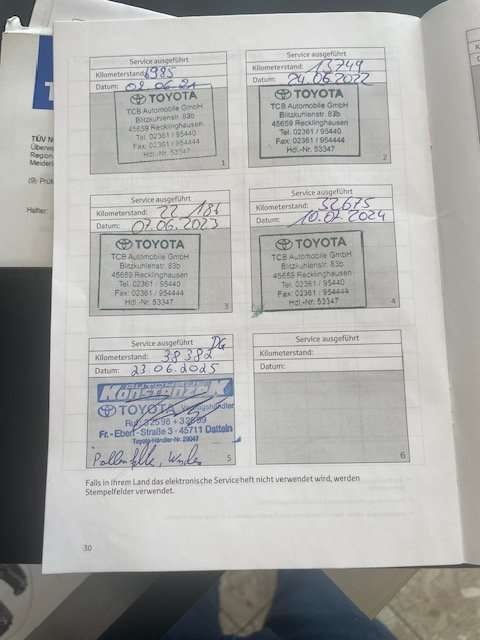 Service ausgeführt
Kilometerstand: 6985
Datum: 08.06.21
TOYOTA
TCB Automobile GmbH
Blitzkuhlenstr. 83b
45659 Recklinghausen
Tel. 02361 / 95440
Fax: 02361 / 954444
Hdl.-Nr. 53347
1
Service ausgeführt
Kilometerstand: 13749
Datum: 24.06.2022
TOYOTA
TCB Automobile GmbH
Blitzkuhlenstr. 83b
45659 Recklinghausen
Tel. 02361 / 95440
Fax: 02361 / 954444
Hdl.-Nr. 53347
2
Service ausgeführt
Kilometerstand: 22 186
Datum: 07.06.2023
TOYOTA
TCB Automobile GmbH
Blitzkuhlenstr. 83b
45659 Recklinghausen
Tel. 02361 / 95440
Fax: 02361 / 954444
Hdl.-Nr. 53347
3
Service ausgeführt
Kilometerstand: 32675
Datum: 10.07.2024
TOYOTA
TCB Automobile GmbH
Blitzkuhlenstr. 83b
45659 Recklinghausen
Tel. 02361 / 95440
Fax: 02361 / 954444
Hdl.-Nr. 53347
4
Service ausgeführt
Kilometerstand: 38382
Datum: 23.06.2025
Konstanzek
TOYOTA
Fr.-Ebert-Straße 3 · 45711 Datteln
Toyota-Händler-Nr. 29047
Pollenfilter,
5
Service ausgeführt
Kilometerstand:
Datum:
6
Falls in Ihrem Land das elektronische Serviceheft nicht verwendet wird, werden
Stempelfelder verwendet.
30
TÜV
Region
Halter: